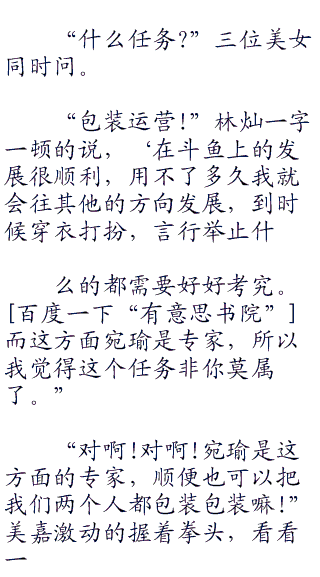 “什么任务?”三位美女
同时问。
“包装运营!”林灿一字
一顿的说，‘在斗鱼上的发
展很顺利，用不了多久我就
会往其他的方向发展，到时
候穿衣打扮，言行举止什
么的都需要好好考究。
[百度一下“有意思书院”]
而这方面宛瑜是专家，所以
我觉得这个任务非你莫属
了。”
“对啊!对啊!宛瑜是这
方面的专家，顺便也可以把
我们两个人都包装包装嘛!”
美嘉激动的握着拳头，看看
一